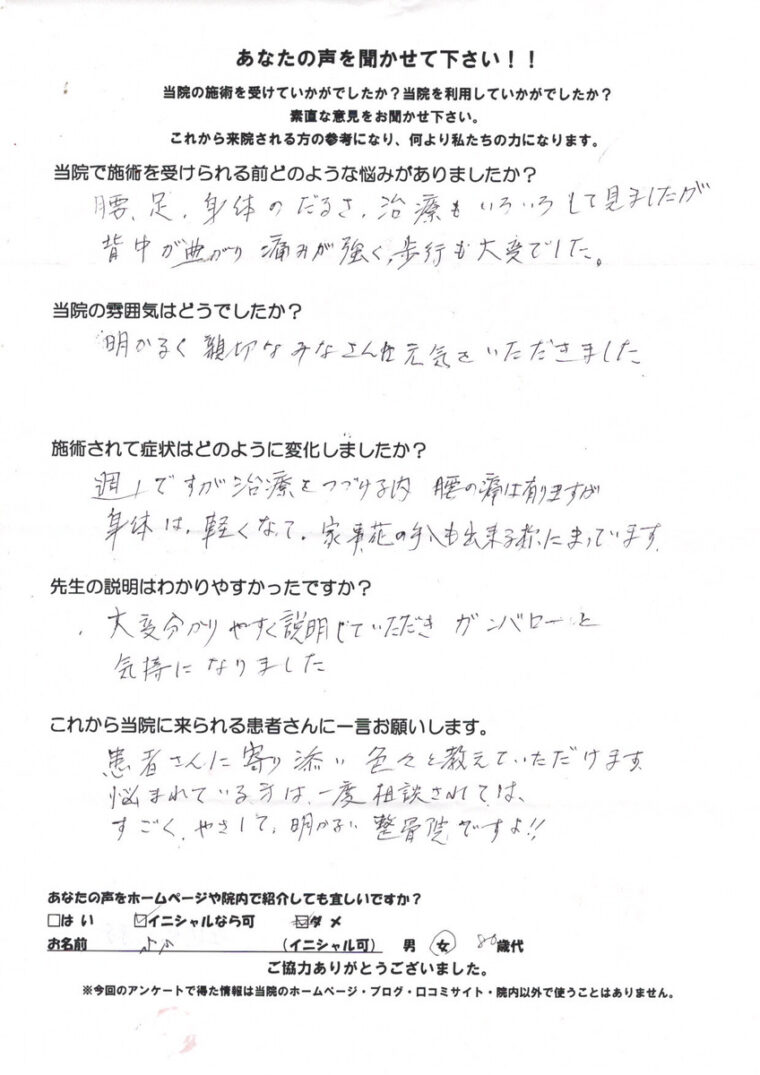 あなたの声を聞かせて下さい！！
当院の施術を受けていかがでしたか？当院を利用していかがでしたか？
素直な意見をお聞かせ下さい。
これから来院される方の参考になり、何より私たちの力になります。
当院で施術を受けられる前どのような悩みがありましたか？
腰、足、身体のだるさ、治療もいろいろして見ましたが
背中が曲がり痛みが強く、歩行も大変でした。
当院の雰囲気はどうでしたか？
明かるく親切なみなさんに元気をいただきました
施術されて症状はどのように変化しましたか？
週1ですが治療をつづける内 腰の痛は有りますが
身体は、軽くなって、家事花の手入も出来る様になっています。
先生の説明はわかりやすかったですか？
大変分かりやすく説明していただき ガンバローと
気持になりました
これから当院に来られる患者さんに一言お願いします。
患者さんに寄り添い 色々と教えていただけます
悩まれている方は、一度相談されては、
すごく、やさしくて、明かるい 整骨院ですよ!!
あなたの声をホームページや院内で紹介しても宜しいですか？
□はい ☑イニシャルなら可 ☑ダメ
お名前 (イニシャル可) 男 女 80歳代
ご協力ありがとうございました。
※今回のアンケートで得た情報は当院のホームページ・ブログ・口コミサイト・院内以外で使うことはありません。